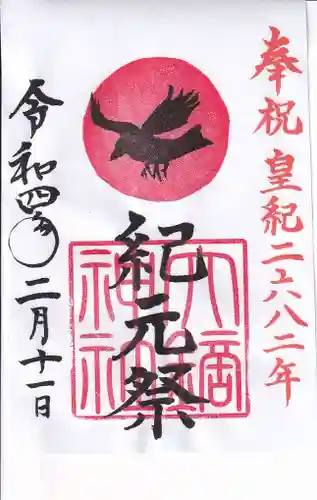 奉祝 皇紀二六八二年
紀元祭
神社
令和四年二月十一日